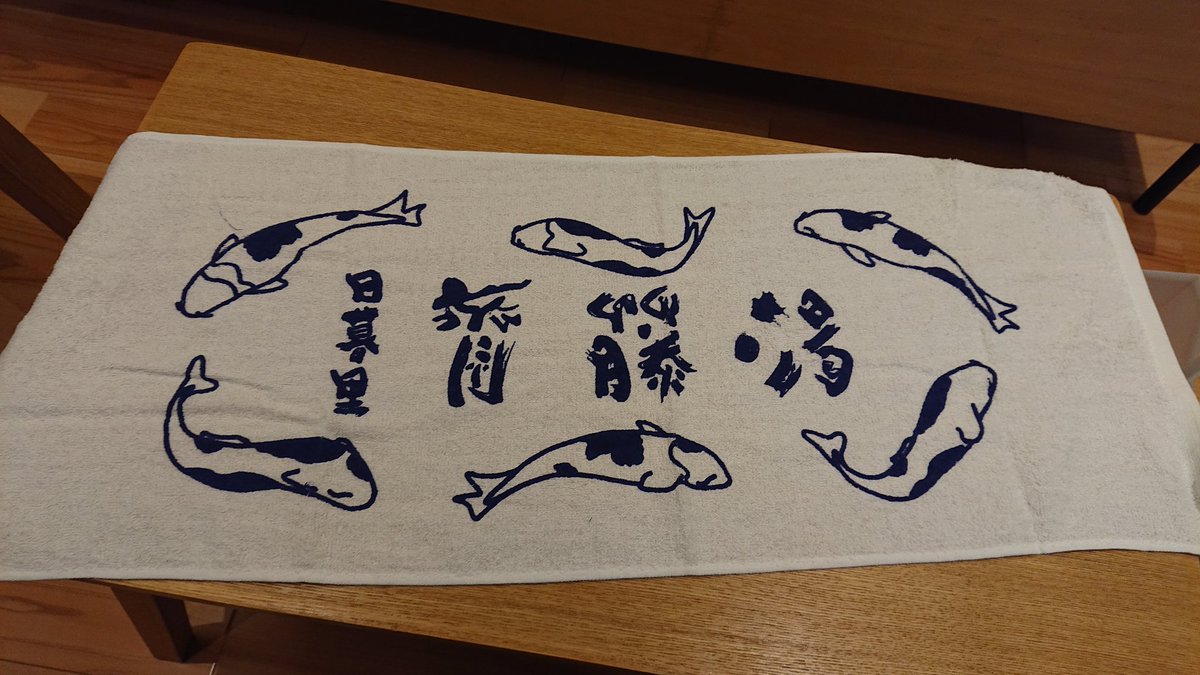 日暮里
斉藤湯